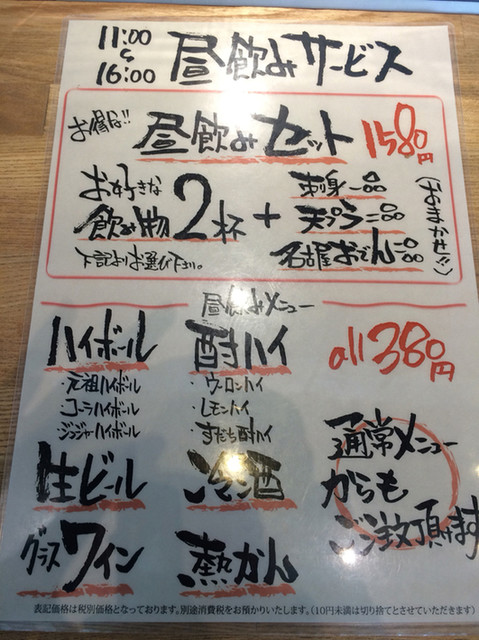 11:00
〜
16:00
昼飲みサービス
お得な!!
昼飲みセット
1580円
お好きな
飲み物2杯
下記よりお選び下さい。
+
刺身一品
天プラ二品
名古屋おでん二品
(おまかせ!!)
昼飲みメニュー
ハイボール
・元祖ハイボール
・コーラハイボール
・ジンジャーハイボール
酎ハイ
・ウーロンハイ
・レモンハイ
・すだち酎ハイ
all 380円
生ビール
冷酒
グラスワイン
熱かん
通常メニュー
からも
ご注文頂けます
表記価格は税別価格となっております。別途消費税をお預かりいたします。(10円未満は切り捨てとさせていただきます)